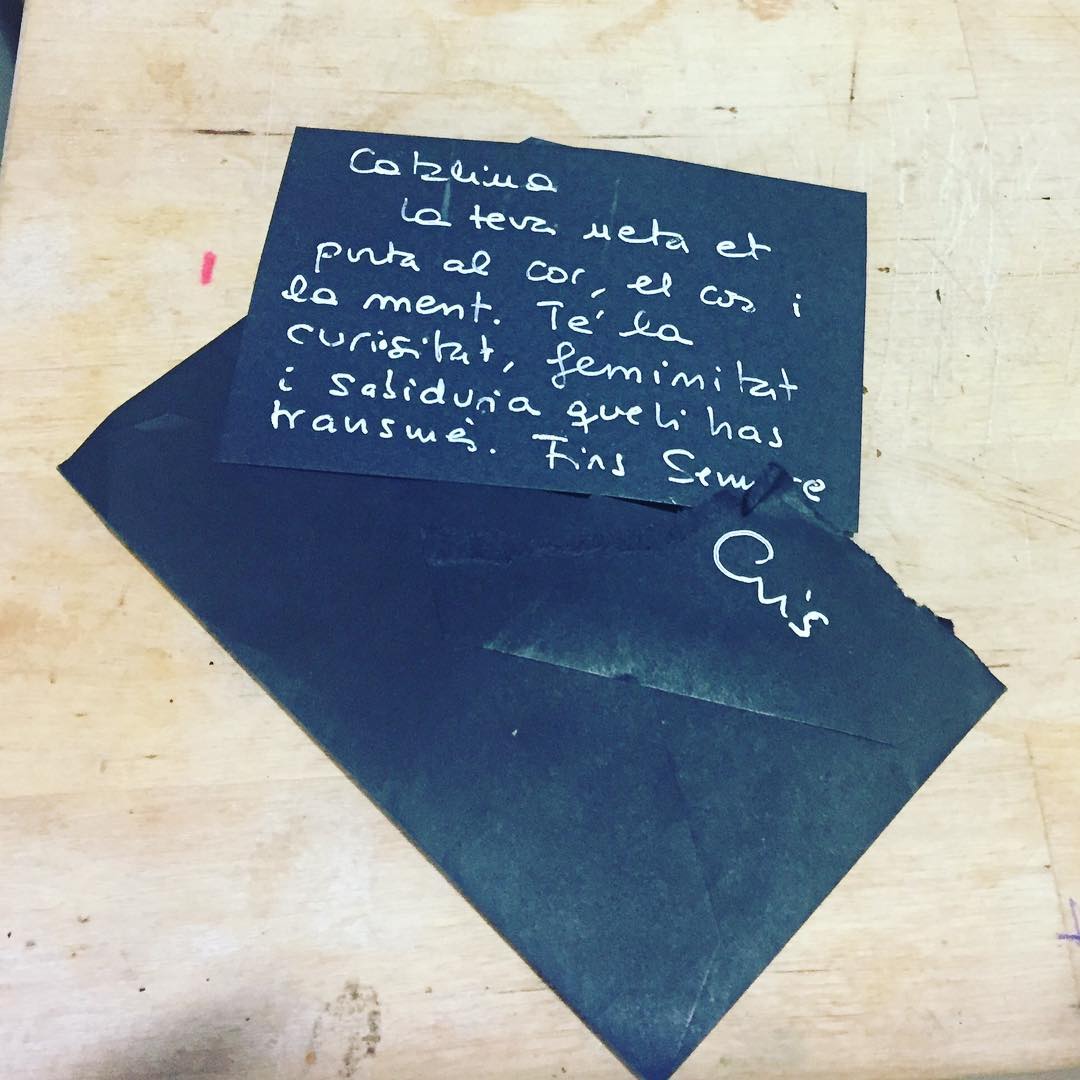 Catalina
La teva neta et
porta al cor, el cos i
la ment. Té la
curiositat, feminitat
i sabiduria que li has
transmès. Fins Sempre
Cris